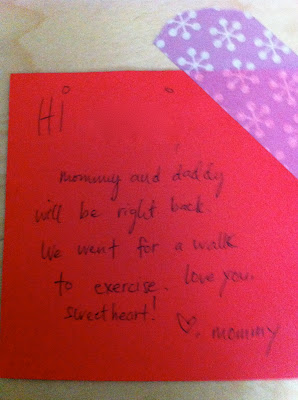 Hi
mommy and daddy
will be right back
We went for a walk
to exercise. love you.
sweetheart!
♡. mommy